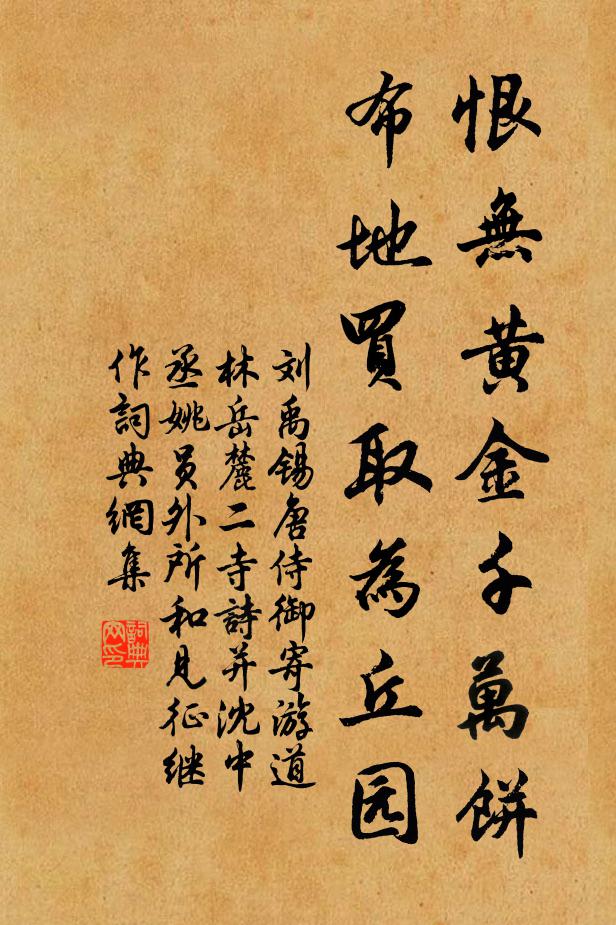 恨無黄金千萬餅
布地買取為丘园
刘禹锡唐侍御寄游道
林岳麓二寺詩并沈中
丞姚员外所和见征继
作詞典網集
詞典
网印